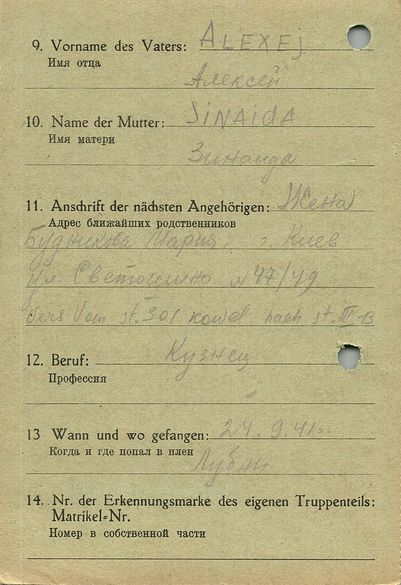 9. Vorname des Vaters: ALEXEJ
Имя отца
Алексей
10. Name der Mutter: SINAIDA
Имя матери
Зинаида
11. Anschrift der nächsten Angehörigen: Жена
Адрес ближайших родственников
Будникова Мария г. Киев
ул. Светошино № 47/49
Vers Vom st. 301 kowel nach st. III B
12. Beruf: Кузнец
Профессия
13 Wann und wo gefangen: 24. 9. 41г.
Когда и где попал в плен
Лубны
14. Nr. der Erkennungsmarke des eigenen Truppenteils:
Matrikel-Nr.
Номер в собственной части